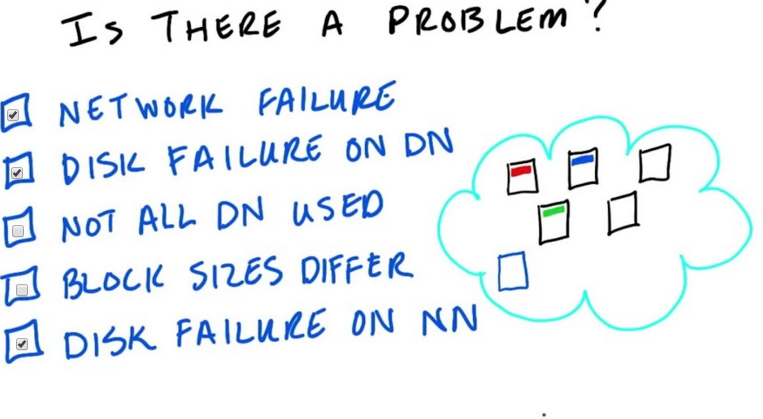 IS THERE A PROBLEM?
NETWORK FAILURE
DISK FAILURE ON DN
NOT ALL DN USED
BLOCK SIZES DIFFER
DISK FAILURE ON NN